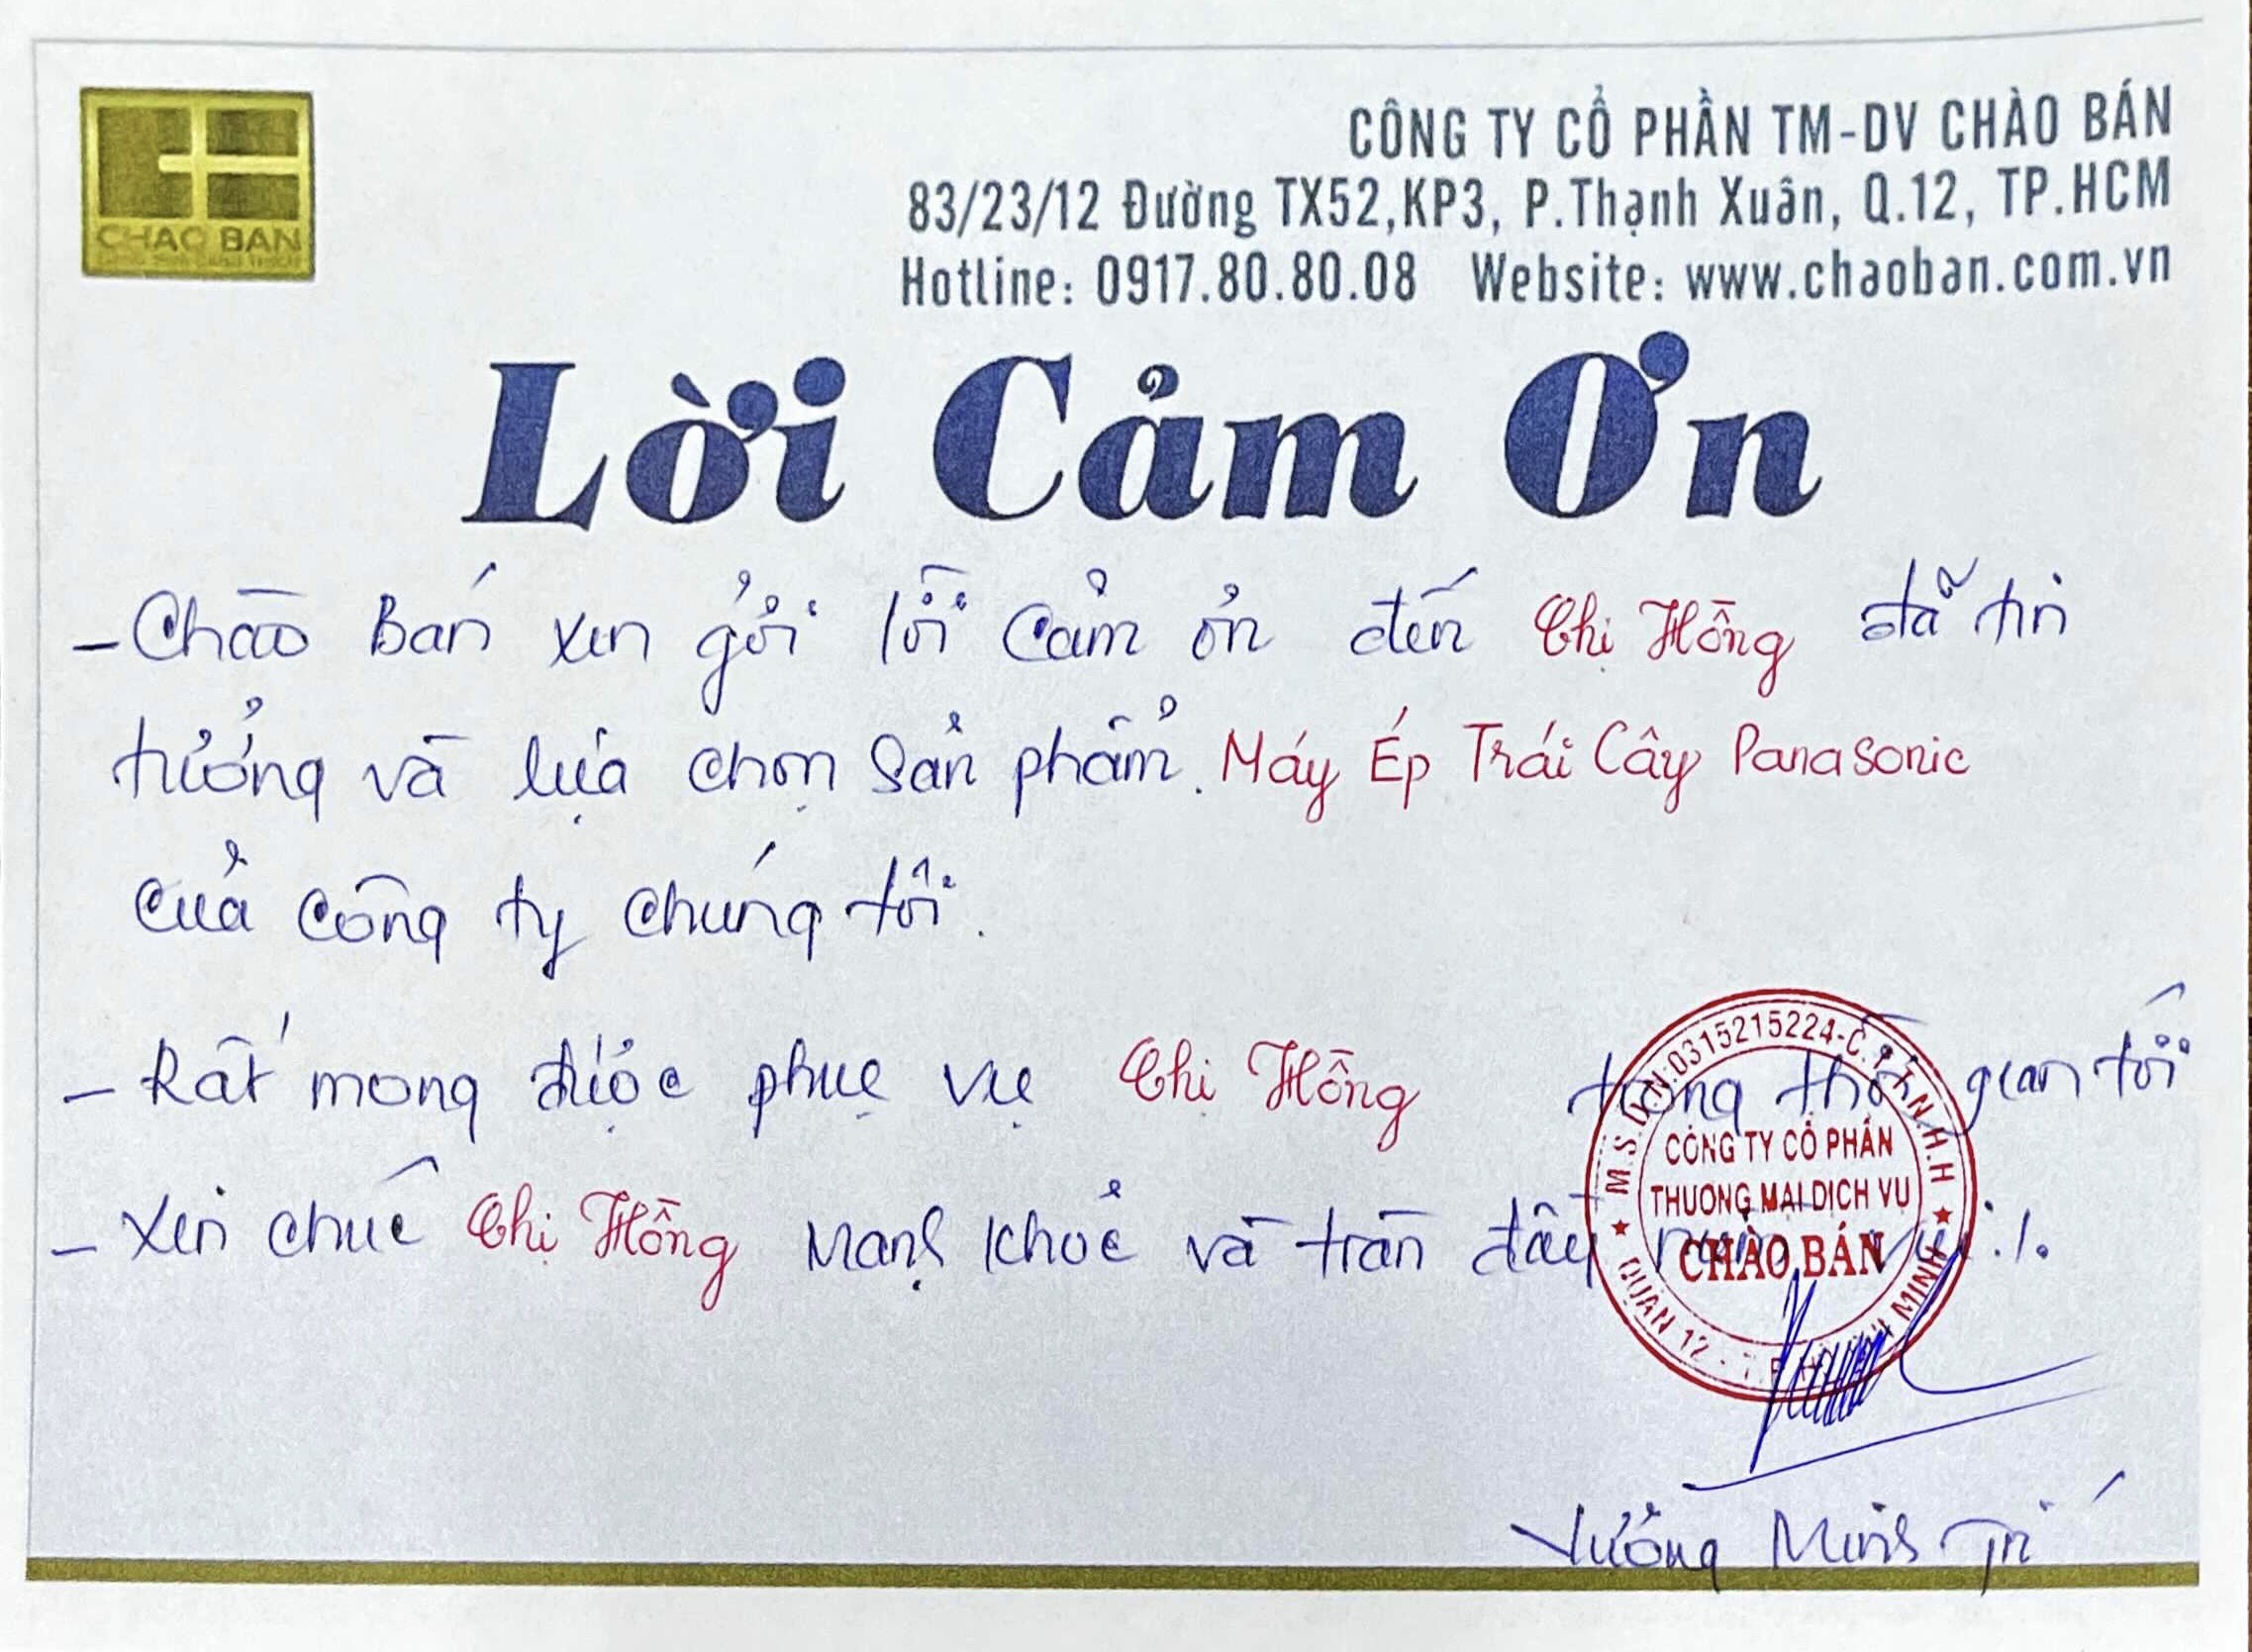 CHAO BAN
CÔNG TY CỔ PHẦN TM-DV CHÀO BÁN
83/23/12 Đường TX52,KP3, P.Thạnh Xuân, Q.12, TP.HCM
Hotline: 0917.80.80.08 Website: www.chaoban.com.vn
Lời Cảm Ơn
- Chào Bán xin gửi lời cảm ơn đến Chị Hồng đã tin
tưởng và lựa chọn sản phẩm. Máy Ép Trái Cây Panasonic
của công ty chúng tôi.
- Rất mong được phục vụ Chị Hồng trong thời gian tới
- Xin chúc Chị Hồng mạnh khỏe và tràn đầy niềm vui./.
M.S.D.N:0315215224-C.T.T.N.H.H
CÔNG TY CỔ PHẦN
THƯƠNG MẠI DỊCH VỤ
CHÀO BÁN
QUẬN 12 - T.P HỒ CHÍ MINH
Vương Minh Trí